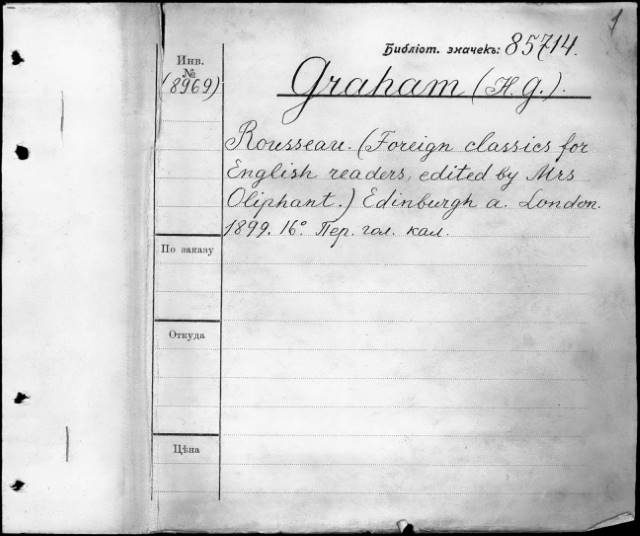 1
Библіот. значекъ: 85714.
Инв.
№
(8969)
Graham (H. G.).
Rousseau. (Foreign classics for
English readers, edited by Mrs
Oliphant.) Edinburgh a. London.
1899. 16° Пер. гол. кал.
По заказу
Откуда
Цѣна